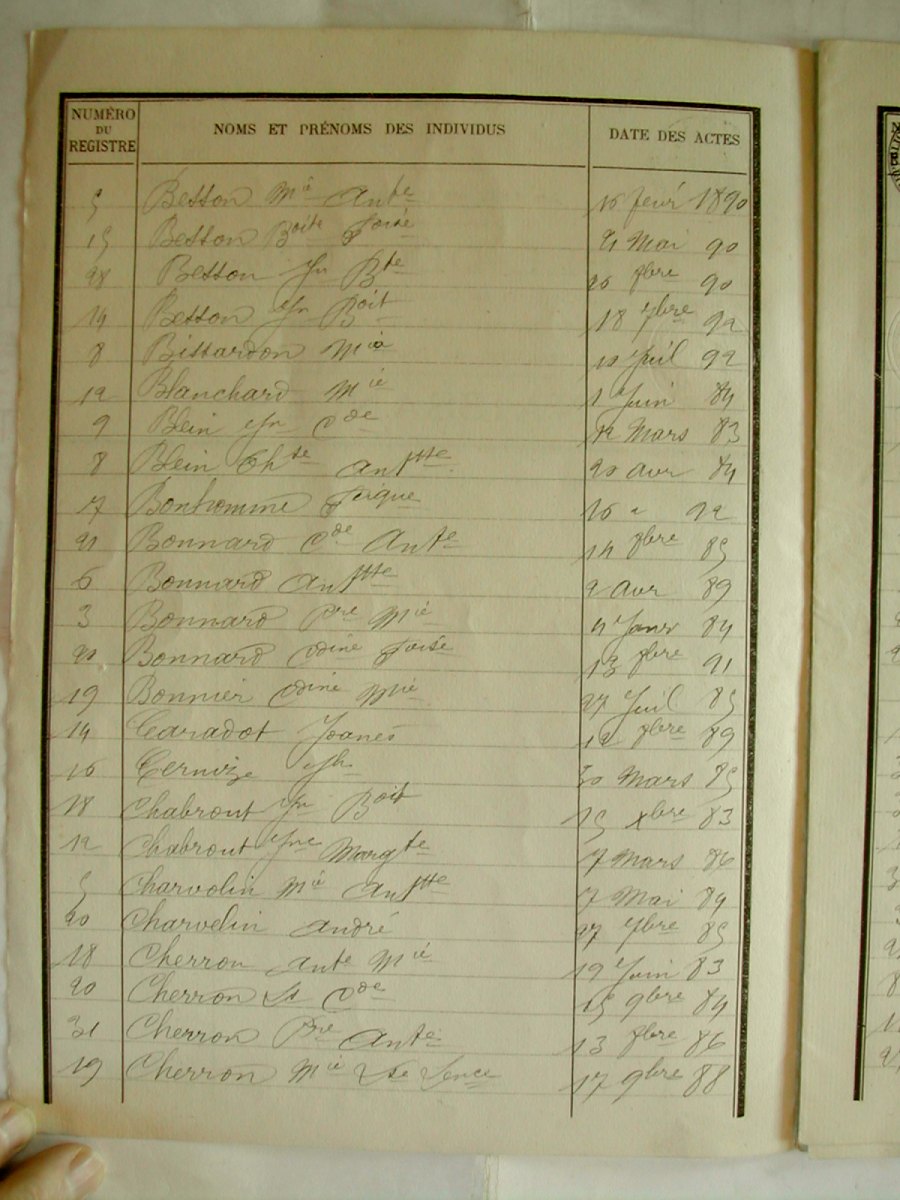 NUMÉRO DU REGISTRE NOMS ET PRÉNOMS DES INDIVIDUS DATE DES ACTES
5 Besson Mie Ante 16 fevr 1890
15 Besson Boite 21 Mai 90
28 Besson Jn Bte 90
14 Besson Jn Boit 18 7bre 92
8 Bissardon Mie 10 Juil 92
12 Blanchard Mie 1 Juin 84
9 Blein Jn Cde 12 Mars 83
8 Blein Chte Anttte 20 avr 84
7 Bonhomme 16 " 92
21 Bonnard Cde Ante 14 85
6 Bonnard Antttte 2 avr 89
3 Bonnard Pre Mie 4 Janv 84
Bonnard Cdine 13 91
19 Bonnier Cdine Mie 27 Juil 85
14 Caradot Joanes 12 89
16 Jh 30 Mars 85
18 Chabrout Jn Boit 15 xbre 83
12 Chabrout Jne Margte 7 Mars 86
5 Charvolin Mie Anttte 7 Mai 84
20 Charvolin André 27 7bre 85
18 Cherron Ante Mie 19 Juin 83
20 Cherron Cde 15 9bre 84
31 Cherron Pre Ante 13 86
19 Cherron Mie 17 9bre 88